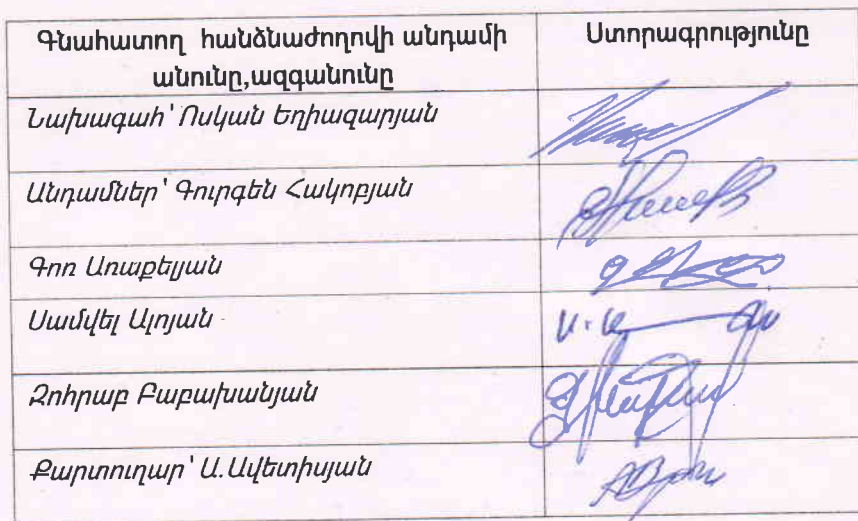 Գնահատող հանձնաժողովի անդամի Ստորագրությունը
անունը,ազգանունը
Նախագահ՝ Ոսկան Եղիազարյան
Անդամներ՝ Գուրգեն Հակոբյան
Գոռ Առաքելյան
Սամվել Ալոյան
Զոհրաբ Բաբախանյան
Քարտուղար՝ Ա.Ավետիսյան